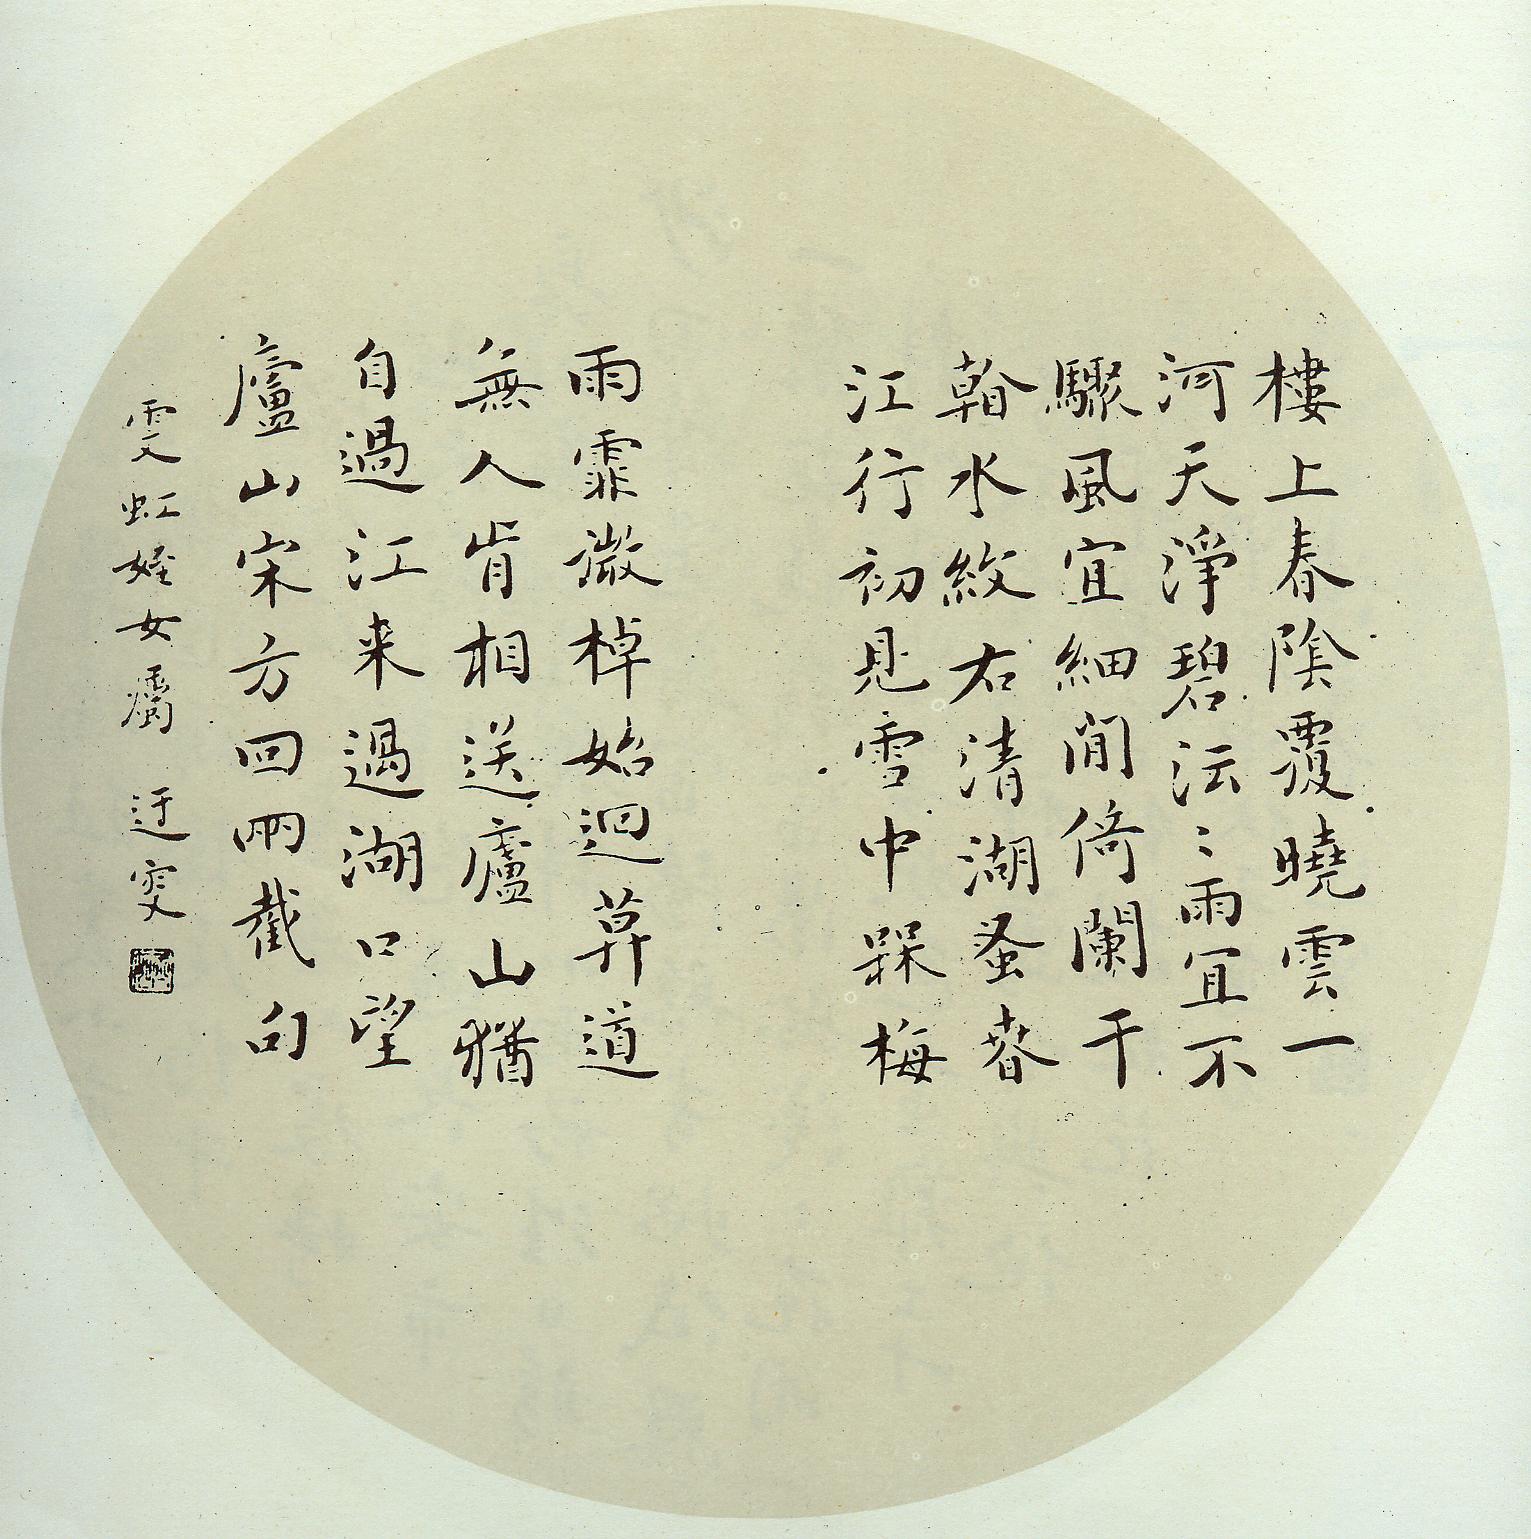 樓上春陰覆曉雲一
河天淨碧沄〻雨宜不
驟風宜細閒倚闌干
看水紋右清湖蚤春
江行初見雪中梅
雨霏微棹始迴莫道
無人肯相送廬山猶
自過江来過湖口望
廬山宋方回兩截句
雯虹姪女屬 迂雯